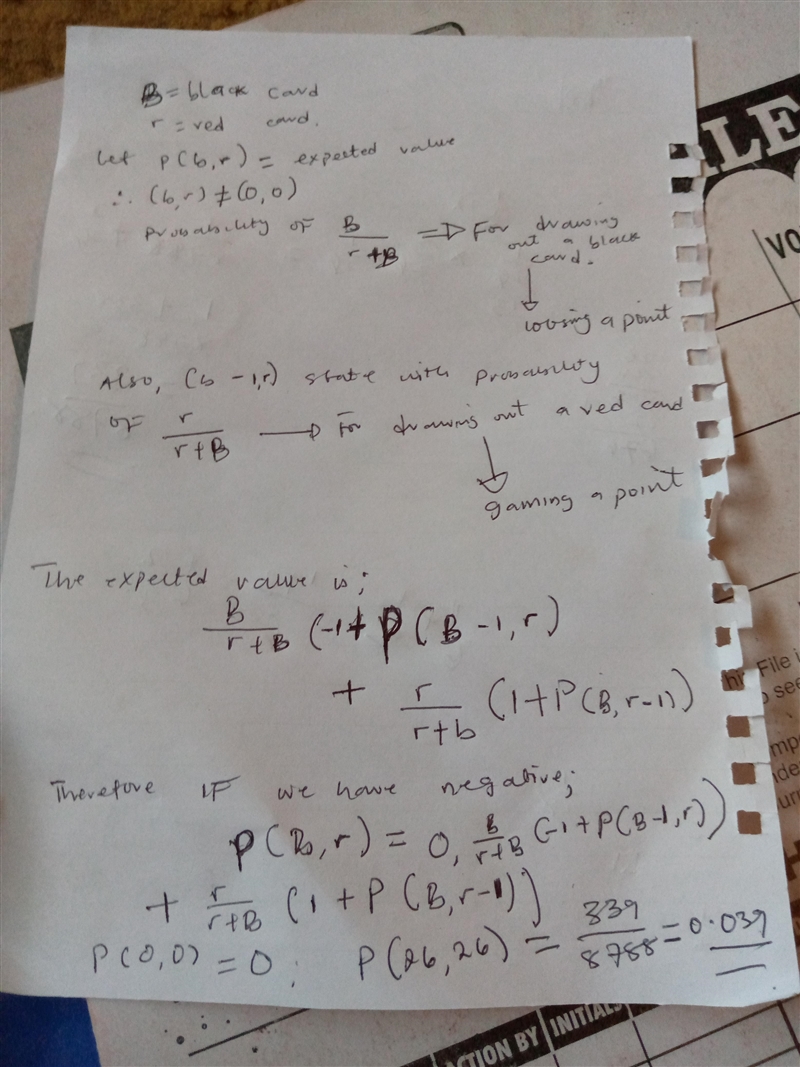 B = black card
r = red card.
Let P(b,r) = expected value
∴ (b,r) ≠ (0,0)
Probability of B/(r+B) ⇒ For drawing
out a black
card.
↓
loosing a point
Also, (b-1,r) state with probability
of r/(r+B) → For drawing out a red card
↓
gaming a point
The expected value is;
B/(r+B) (-1+P(B-1,r)
+ r/(r+b) (1+P(B,r-1))
Therefore IF we have negative;
P(B,r) = 0, B/(r+B) (-1+P(B-1,r))
+ r/(r+B) (1+P(B,r-1)]
P(0,0) = 0; P(26,26) = 339/8788 = 0.039
ILE
VO
File i
o see
mp
ide
urr
H
ACTION BY
INITIALS